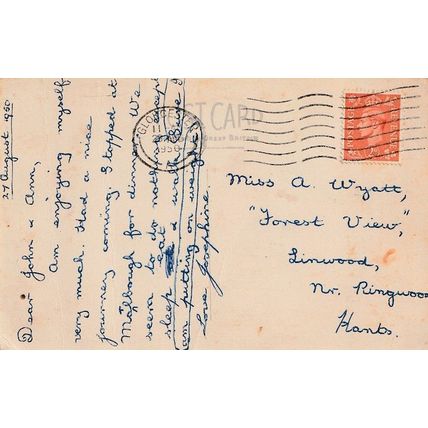 27 August 1950
Dear John & Ann,
Am enjoying myself
very much. Had a nice
journey coming. Stopped at
Malbough for dinner. We
seem to do nothing except
sleep eat & walk
am putting on weight
Love Josephine
POST CARD
GREAT BRITAIN
GLOUCESTER
11
1950
Miss A. Wyatt,
"Forest View",
Linwood,
Nr. Ringwood
Hants.